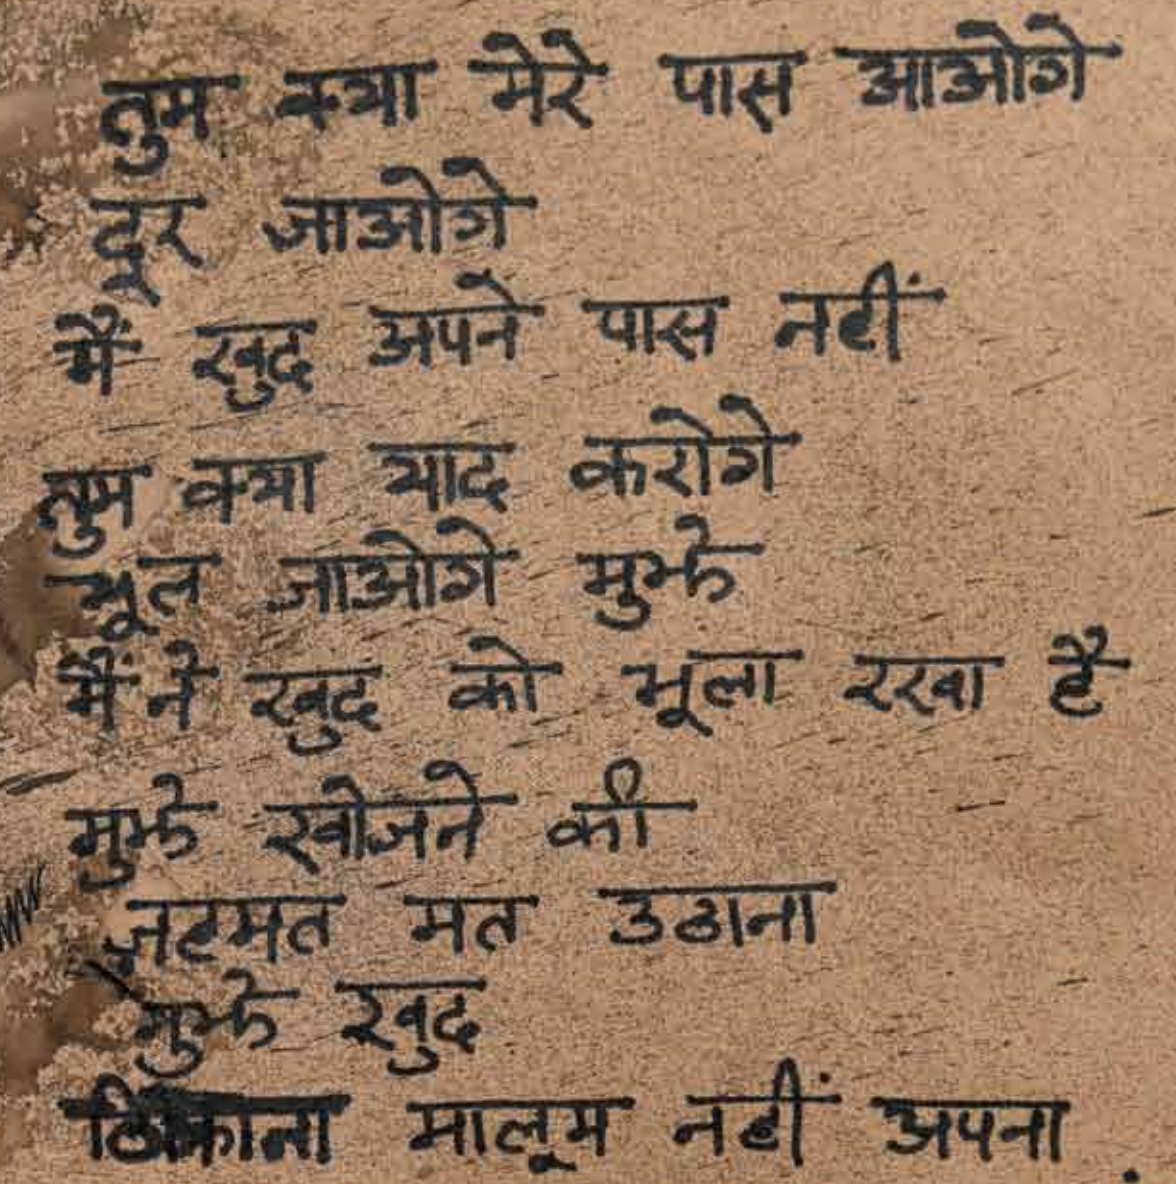 तुम क्या मेरे पास आओगे
दूर जाओगे
मैं खुद अपने पास नहीं
तुम क्या याद करोगे
भूल जाओगे मुझे
मैं ने खुद को भूला रखा है
मुझे खोजने की
ज़हमत मत उठाना
मुझे खुद
ठिकाना मालूम नहीं अपना .